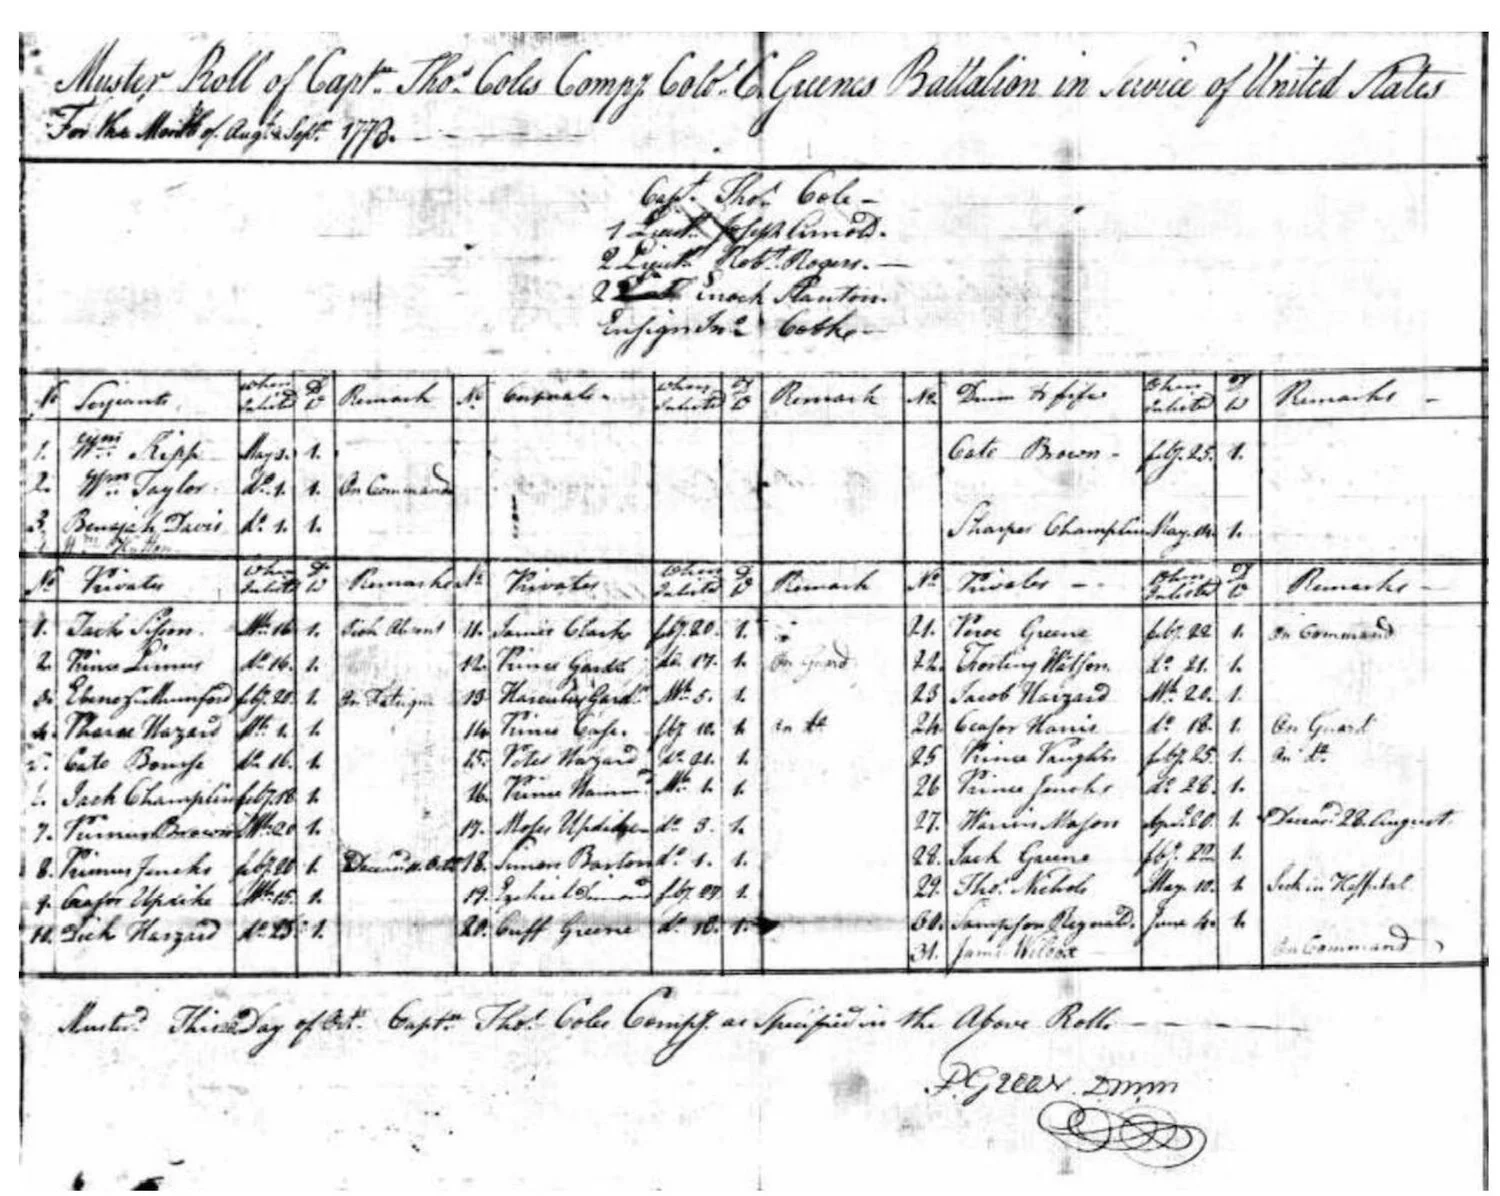 Muster Roll of Captn Thos Coles Compy Colol C. Greenes Battalion in Service of United States
For the Month of Augt & Sept. 1778.
Capt. Thos Cole
1 Lieut. Joseph Arnold.
2 Lieut. Robt Rogers.
2 Enoch Stanton.
Ensign Jno Cooke
No Serjeants When Inlisted D W Remark No Corporals When Inlisted D W Remark No Drum & fife When Inlisted D W Remarks
1. Wm Kipp May 1. 1. Cato Brown feby. 25. 1.
2. Wm Taylor. do. 1. 1. On Command
3. Benajah Davis do. 1. 1. Sharper Champlin May. 14. 1.
4 Wm
No Privates When Inlisted D W Remarks No Privates When Inlisted D W Remark No Privates When Inlisted D W Remarks
1. Jack Sisson. Mh 16. 1. Sick Absent 11. James Clarke feby. 20. 1. 21. Peroe Greene feby. 22 1. On Command
2. Prince Limus do. 16. 1. 12. Prince Gardr do. 17. 1. On Guard 22. Watson. do. 21. 1.
3. Ebenezr Mumford feby. 20. 1. On Fatigue 13 Gardr Mh 5. 1. 23 Jacob Hazard Mh 20. 1.
4. Pharoe Hazard Mh. 1. 1. 14. Prince feby 10. 1. on do 24. Ceasor Harris do. 18. 1. On Guard
5. Cato Bourse do. 16. 1. 15. Peter Hazard do. 21. 1. 25 Prince Vaughn feby. 25. 1. on do.
6. Jack Champlin feby. 18 1. 16. Prince Mh 1. 1. 26 Prince Jencks do. 28. 1.
7. Primus Brown Mh. 20 1. 17. Moses Updike do 3. 1. 27. Mason Apr. 20. 1. Deceasd 28. August.
8. Primus Jencks feby. 20 1. Deceasd Octr 18. Simon Barton do. 1. 1. 28. Jack Greene feby. 22 1.
9. Ceasor Updike Mh. 15. 1. 19. Ezekiel feby 24 1. 29. Thos Nichols May. 10. 1 Sick in Hospital
10. Dick Hazard do. 25. 1. 20. Cuff Greene do. 18. 1. 30. Sampson Reynold. June 4. 1.
31. James Wilcox On Command
Musterd Third Day of Octr. Captn Thos. Coles Compy. as Specifyed in the Above Roll